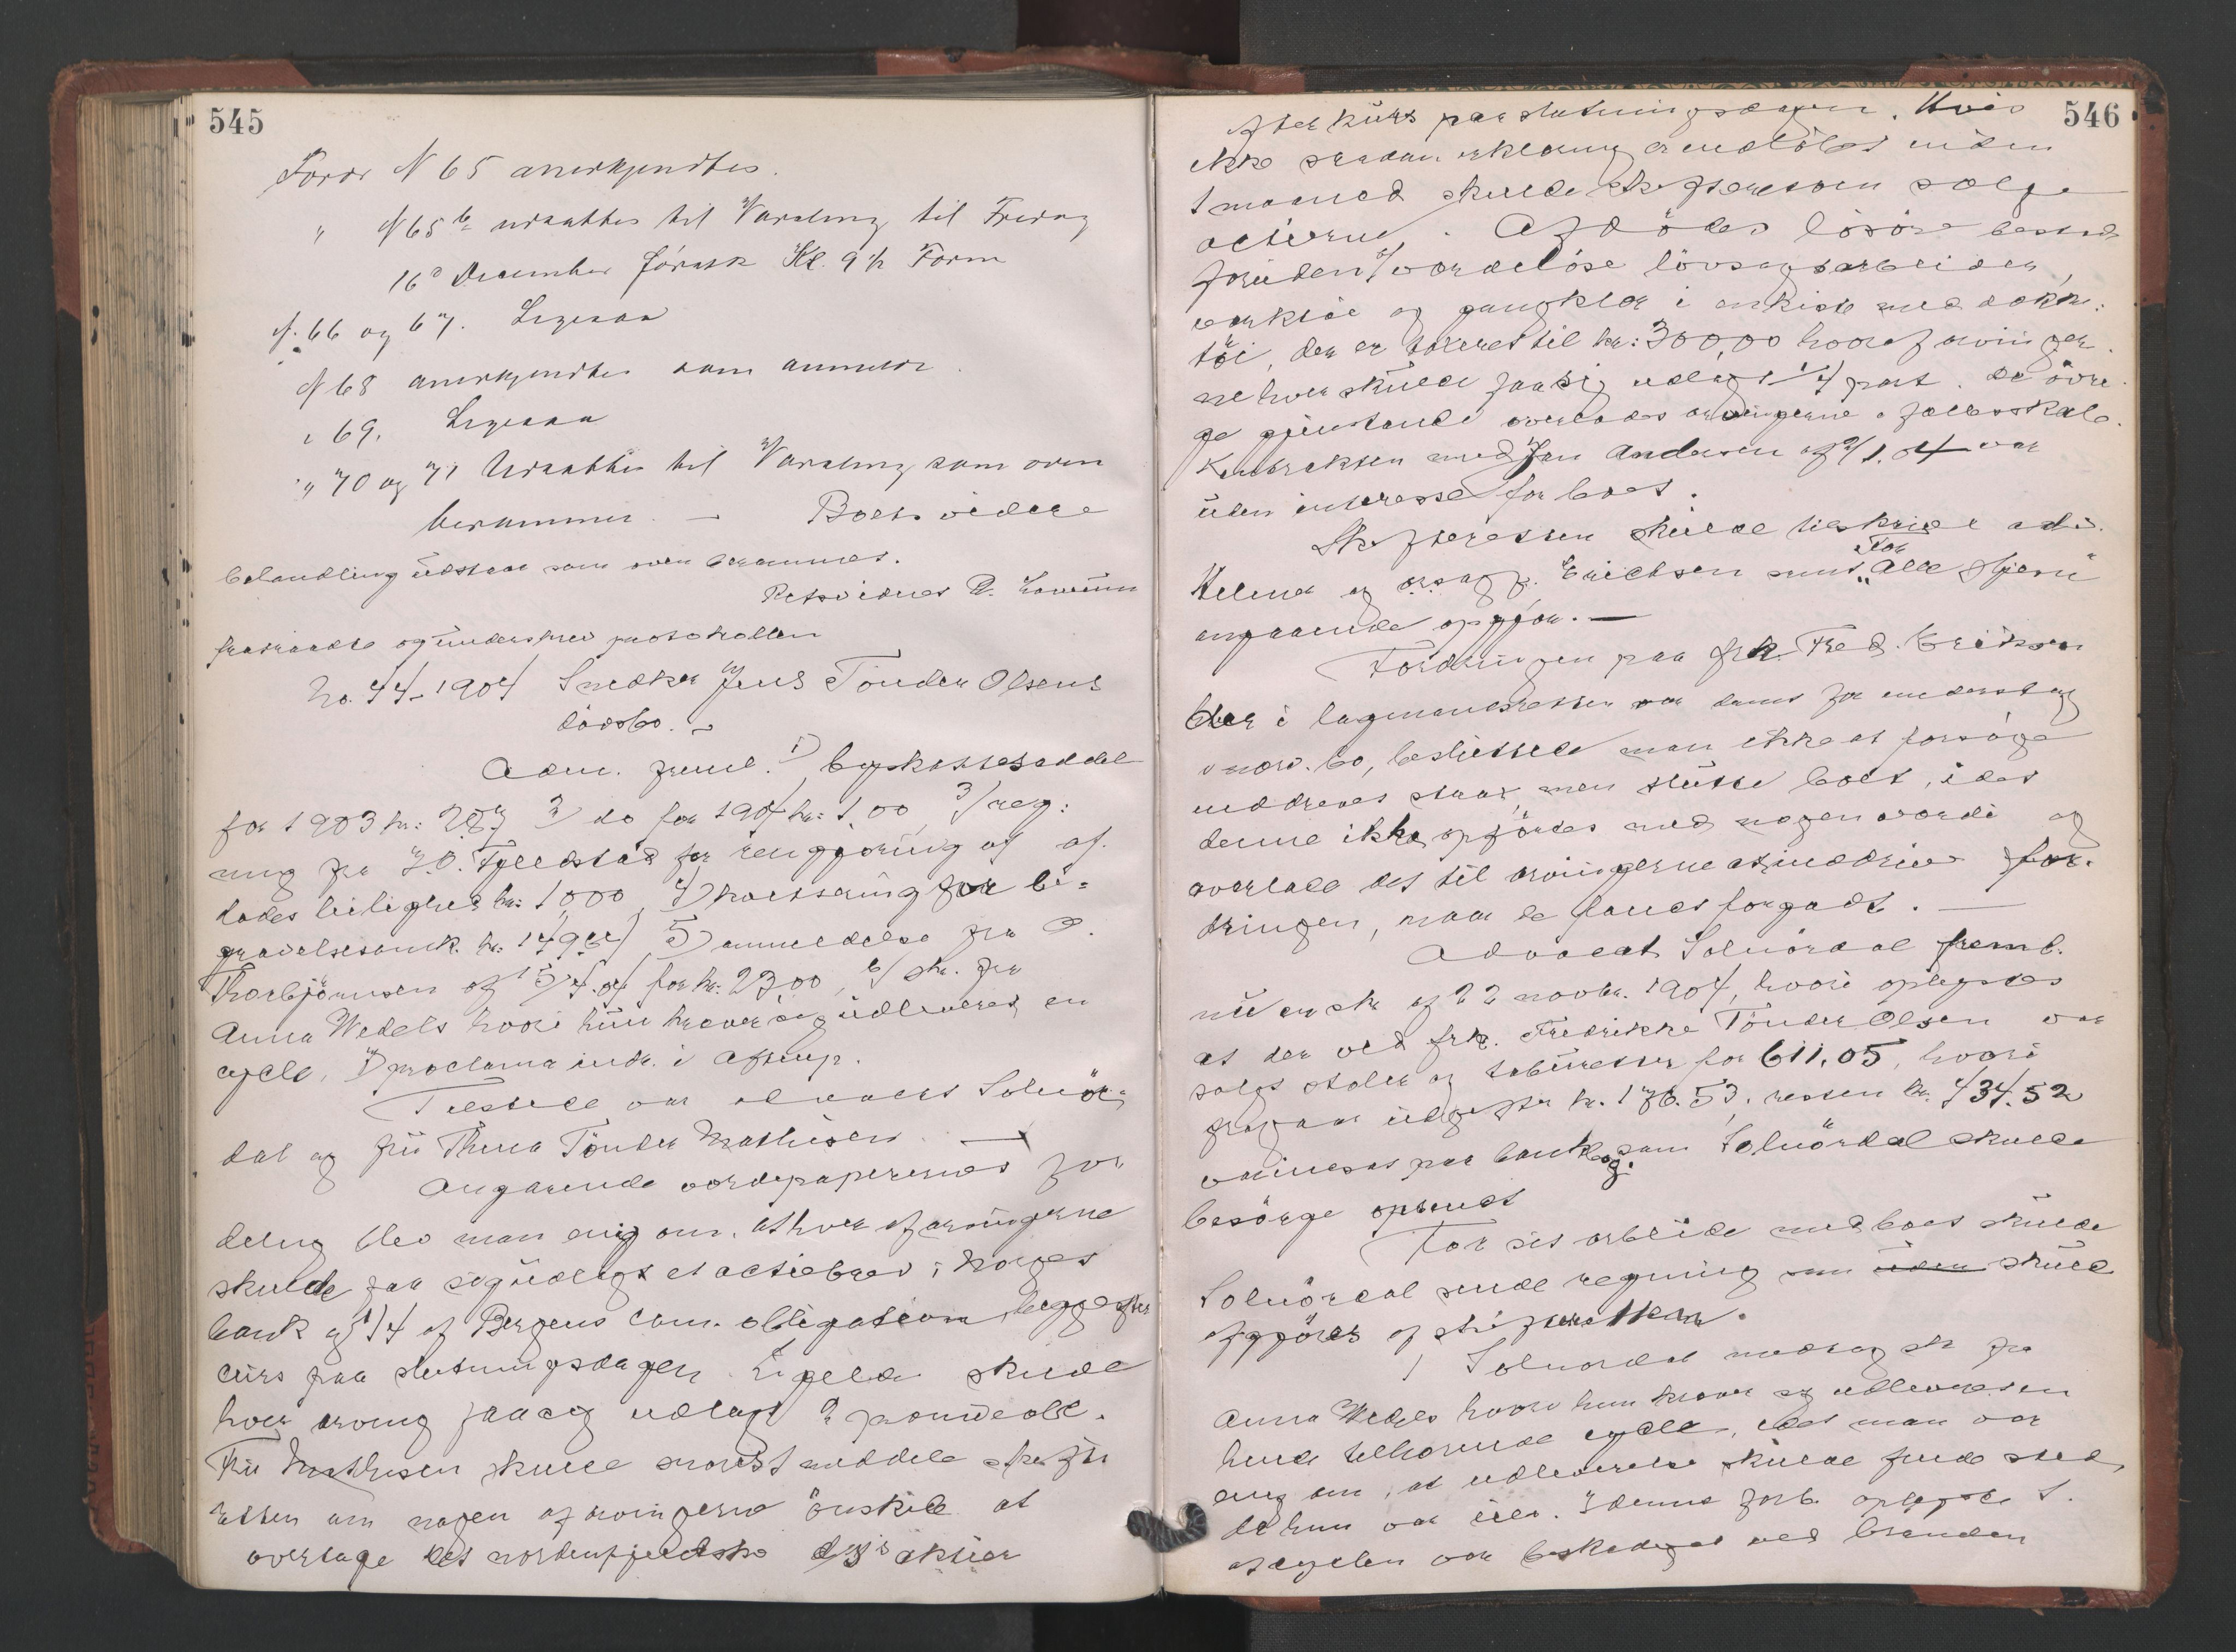 545
Fordr N 65 anerkjendtes.
" N 65 b udsattes til Vurdering til Fredag
16d December førstk Kl. 9½ Form
N. 66 og 67. Ligesaa
N 68 anerkjendtes som anmeldt.
" 69. Ligesaa
" 70 og 71 Udsattes til Vurdering som oven
berammet. — Boets videre
behandling udstaar som oven berammet.
Retsvidnet P.
fratraadte og underskrev protokollen
No. 44-1904 Snedker Jens Tönder Olsens
dödsbo. —
Adm. freml. 1) bykasseseddel
for 1903 kr: 2) do for 1904 kr: 1,00, 3) reg-
ning fra J.O. Fjeldstad for rengjöring af af-
dödes leilighed kr: 1000, 4) for be-
gravelsesomk. kr. 5) anmeldelse fra O.
Thorbjörnsen af for kr: 2300, 6) skr. fra
Anna Wedels hvori hun kræver sig udleveret en
cycle, 7) proclama indr. i
Tilstede var advocat Solnör-
dal og fru Thora Tönder Mathisen. —
Angaaende værdipapirernes for-
deling blev man enig om, at hver af arvingerne
skulde faa sig udlagt et actiebrev i Norges
bank og 1/4 af Bergens Com. obligation, begge efter
curs paa slutningsdagen. Ligeledes skulde
hver arving faa sig udlagt 2
Fru Mathisen skulde snarest meddele skifte-
retten om nogen af arvingerne önskede at
overtage det nordenfjeldske d/s's aktier
546
efter kurs paa slutningsdagen. Hvis
ikke saadan erklæring er indlöbet inden
1 maaned skulde skifteretten sælge
actierne. Afdödes lösöre bestod
foruden af værdilöse lövsagsarbeider,
verktöi og gangklær i en kiste med dække-
töi, der er takseret til kr: 300,00 hvoraf arvinger-
ne hver skulde faa sig udlagt 1/4 part. De övri-
ge gjenstande overlodes arvingerne i fællesskab.
Kontrakten med Jon Andersen af var
uden interesse for boet.
Skifteretten skulde tilskrive adv.
og Erichsen samt "For Alle"
angaaende opgjör. —
Fordringen paa frk. Fred. Erikson
der i lagmandsretten var dömt for underslag
, besluttede man ikke at forsöge
inddrevet straks, men slutte boet, idet
denne ikke opförtes med nogen værdi og
overlade det til arvingerne at inddrive for-
dringen, naar de fandt for godt. —
Advocat Solnördal freml.
nu en skr af 22 novbr. 1904, hvori oplystes
at der ved frk. Fredrikke Tönder Olsen var
solgt stoler og tabouretter for 611,05, hvori
fragaar udgifter kr. 176.53, resten kr. 434.52
paa bankbog. som Solnördal skulde
besörge opsendt
For sit arbeide med boet skulde
Solnördal sende regning som skulde
afgjöres af skifteretten.
Solnördal modtog skr fra
Anna Wedels hvori hun kræver sig udleveret en
hende tilhörende cycle, idet man var
enig om, at udleverelse skulde finde sted,
da hun var eier. I denne forb. oplyste S.
at cyclen var beskadiget ved branden